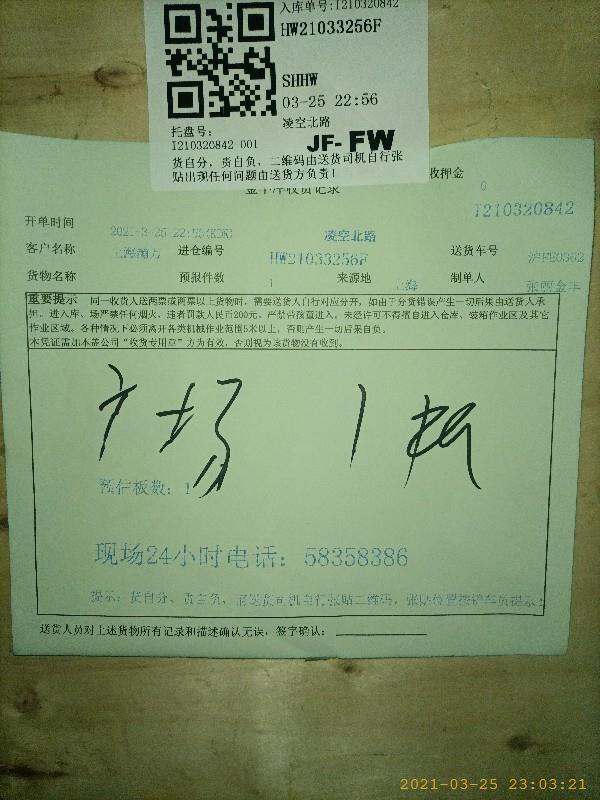 入库单号:I210320842
HW21033256F
SHHW
03-25 22:56
凌空北路
托盘号:
I210320842-001
JF-FW
货自分，责自负，二维码由送货司机自行张
贴出现任何问题由送货方负责！
收货记录
收押金
0
I210320842
开单时间 2021-3-25 22:55 凌空北路
客户名称 上海 进仓编号 HW21033256F 送货车号
货物名称 预报件数 1 来源地 上海 制单人
重要提示 同一收货人送两票或两票以上货物时，需要送货人自行对应分开，如由于分货错误产生一切后果由送货人承
担。进入库、场严禁任何烟火，违者罚款人民币200元，严禁带孩童进入。未经许可不得擅自进入仓库、装箱作业区及其它
作业区域。各种情况下必须离开各类机械作业范围5米以上，否则产生一切后果自负。
本凭证需加本盖公司“收货专用章”方为有效，否则视为该货物没有收到。
广场 1板
预估板数：1
现场24小时电话：58358386
提示：货自分、责自负，请送货司机自行张贴二维码，张贴位置按铲车员提示！
送货人员对上述货物所有记录和描述确认无误，签字确认：
2021-03-25 23:03:21